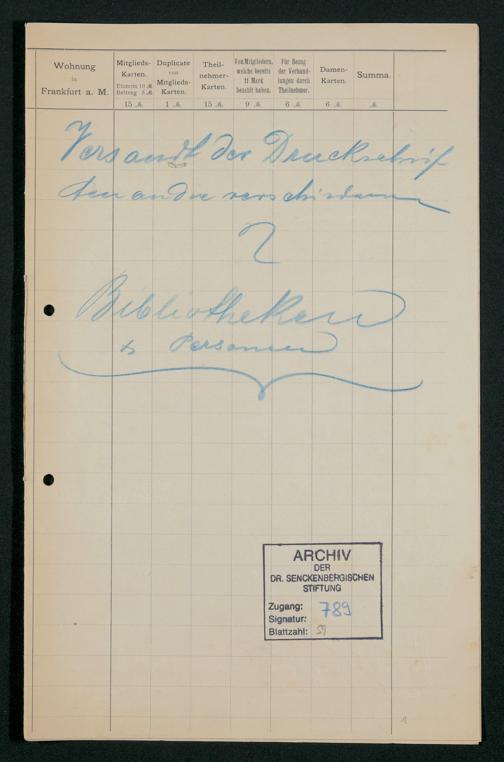 Wohnung
in
Frankfurt a. M.
Mitglieds-
Karten.
Eintritt 10 ℳ.
Beitrag 5 ℳ.
15 ℳ.
Duplicate
von
Mitglieds-
Karten.
1 ℳ.
Theil-
nehmer-
Karten.
15 ℳ.
Von Mitgliedern,
welche bereits
11 Mark
bezahlt haben.
9 ℳ.
Für Bezug
der Verhand-
lungen durch
Theilnehmer.
6 ℳ.
Damen-
Karten.
6 ℳ.
Summa.
ℳ.
Versandt der Druckschrif
ten an die verschiedenen
Bibliotheken
& Personen
ARCHIV
DER
DR. SENCKENBERGISCHEN
STIFTUNG
Zugang:
Signatur: 789
Blattzahl: 59
1